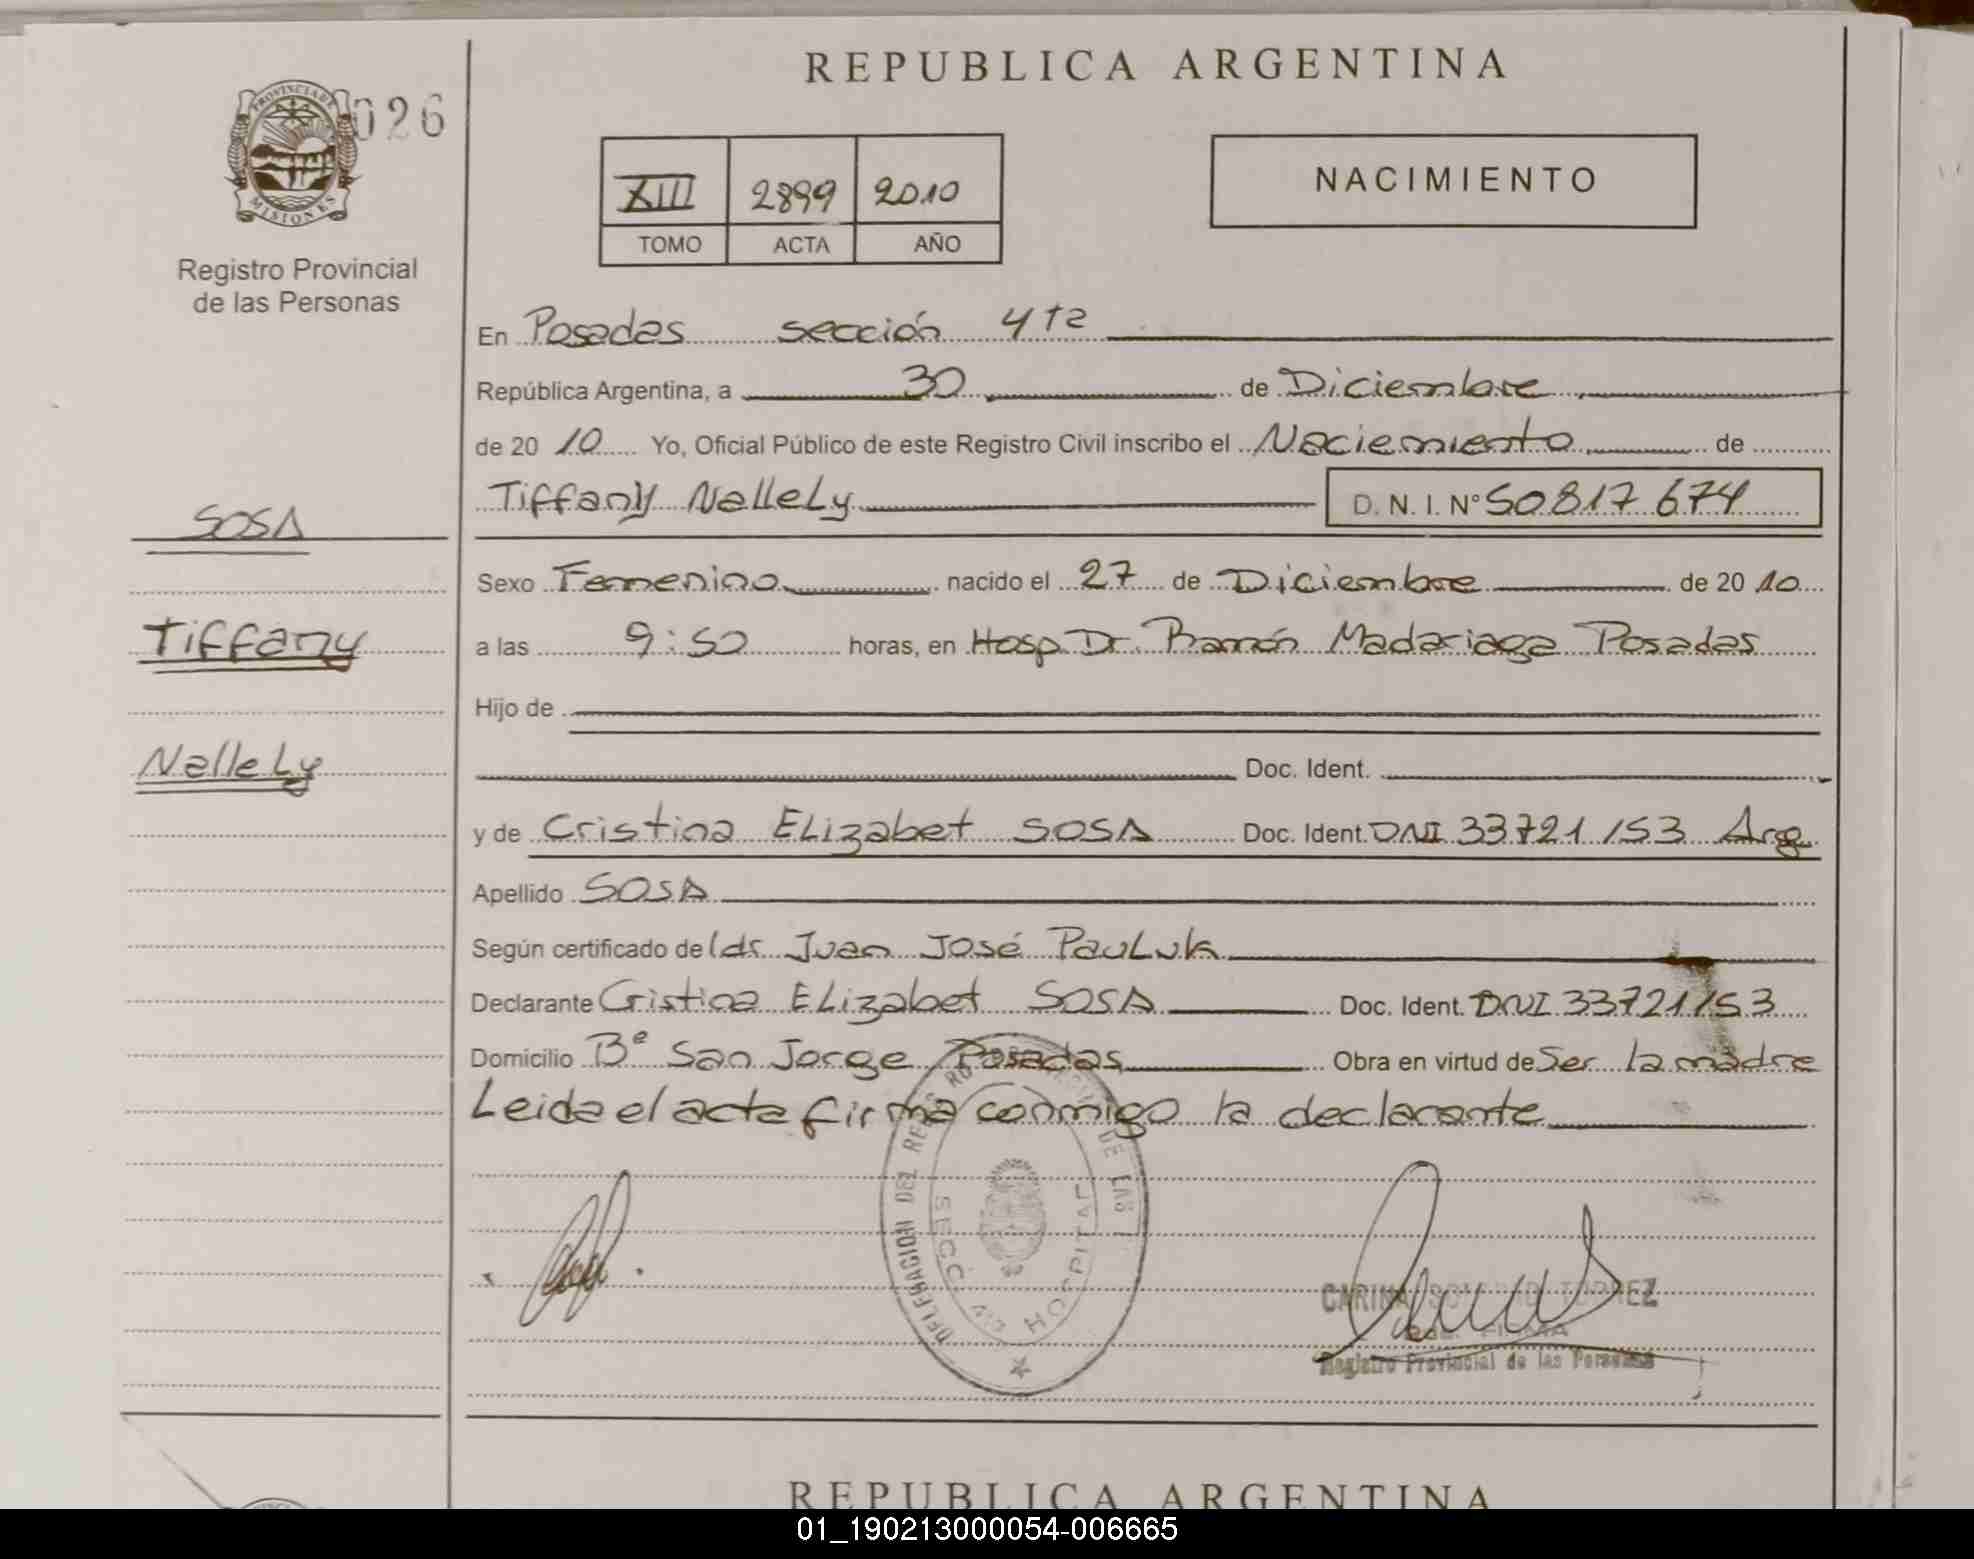 REPUBLICA ARGENTINA
026
PROVINCIA DE
MISIONES
Registro Provincial
de las Personas
XIII 2899 2010
TOMO ACTA AÑO
NACIMIENTO
En Posadas sección 4ta
República Argentina, a 30 de Diciembre
de 2010 Yo, Oficial Público de este Registro Civil inscribo el Naciemiento de
Tiffany NalleLy D. N. I. N° 50817674
SOSA
Sexo Femenino nacido el 27 de Diciembre de 2010
Tiffany
a las 9:50 horas, en Hosp. Dr. Ramón Madariaga Posadas
Hijo de
NalleLy
Doc. Ident.
y de Cristina ELizabet SOSA Doc. Ident. DNI 33721153 Arg.
Apellido SOSA
Según certificado de ldr. Juan José PauLuk
Declarante Cristina ELizabet SOSA Doc. Ident. DNI 33721153
Domicilio Bº San Jorge Posadas Obra en virtud de Ser la madre
Leida el acta firma conmigo la declarante
DELEGACION DEL REG RO DE LAS
SECC. 4ta HOSPITAL
CARINA TORREZ
FIRMA
Registro Provincial de las Personas
REPUBLICA ARGENTINA
01_190213000054-006665